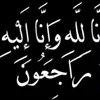 نَّا لِلّٰهِ وَإِنَّا إِلَيْهِ
رَاجَعُونَ